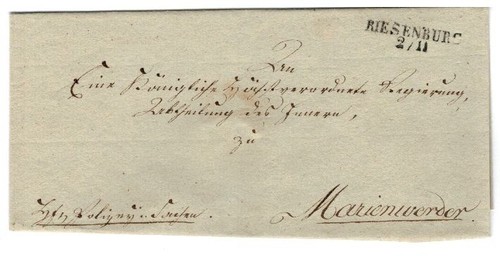 RIESENBURG
2/11
An
Eine Königliche Höchstverordnete Regierung,
Abtheilung des Innern,
zu
Polizey-Sachen.
Marienwerder.